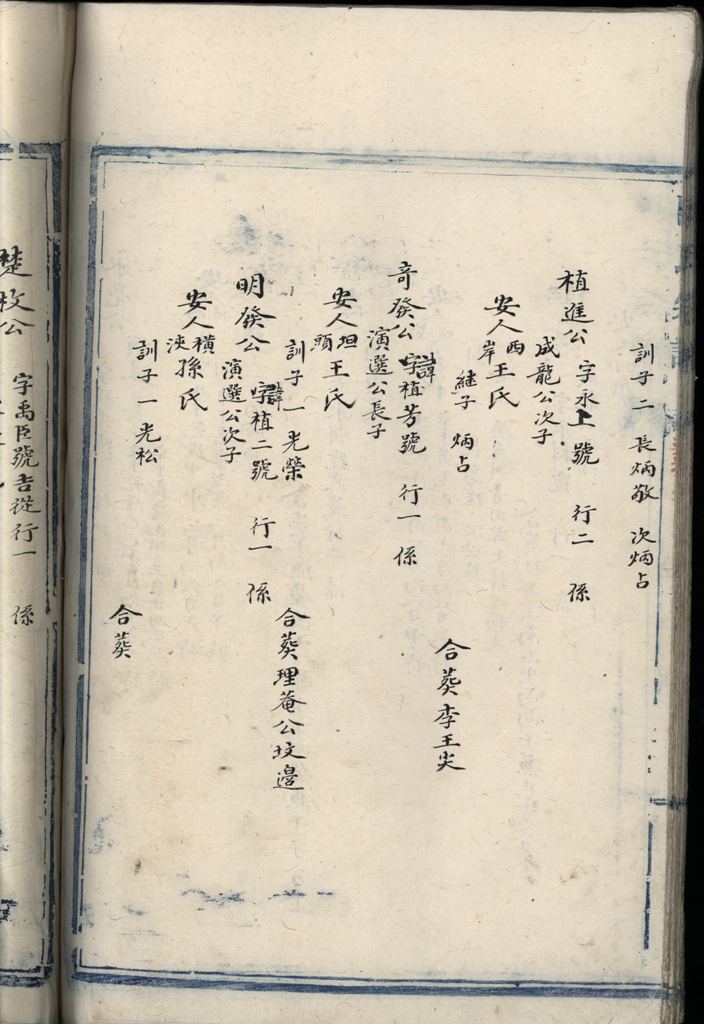 訓子二 長炳敬 次炳占
植進公 字永上號 行二 係
成龍公次子
安人西岸王氏
繼子 炳占
合葬李王尖
奇發公 諱字植芳號 行一 係
演選公長子
安人坦頭王氏
訓子一 光榮
合葬理菴公坟邉
明發公 諱字植二號 行一 係
演選公次子
安人橫浹孫氏
訓子一 光松
合葬
楚枚公 字禹臣號吉從行一 係